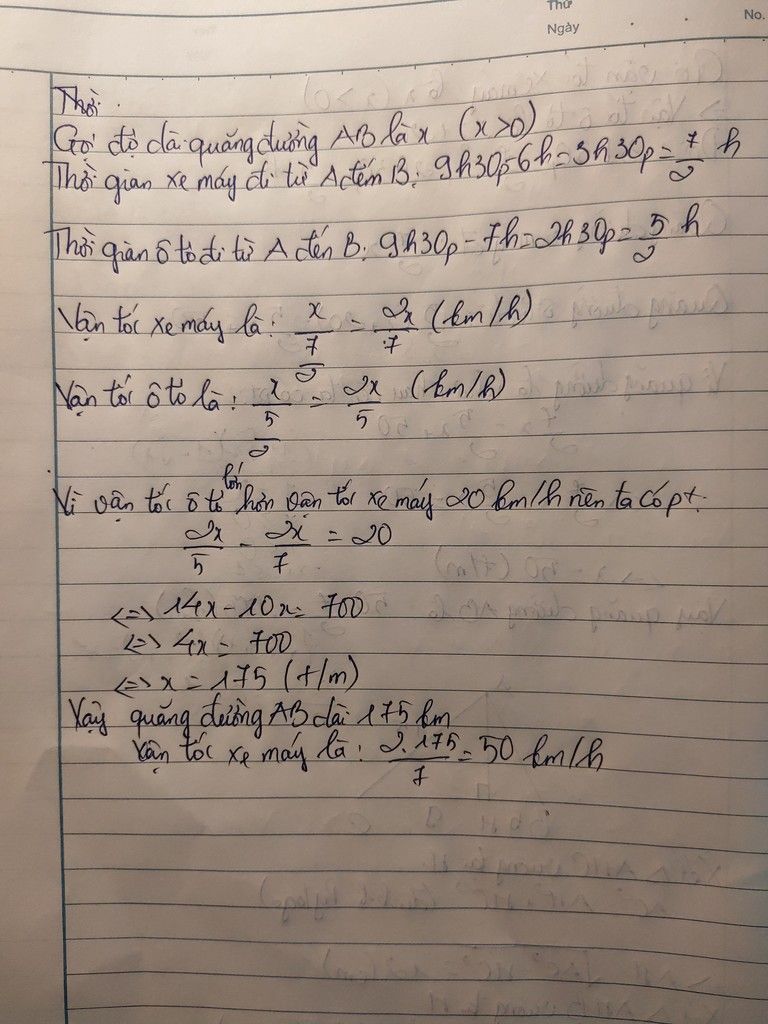 Thứ
Ngày
No.
Thời
Gọi độ dài quãng đường AB là x (x>0)
Thời gian xe máy đi từ A đến B: 9h30p-6h=3h30p=7/2 h
Thời gian ô tô đi từ A đến B: 9h30p-7h=2h30p=5/2 h
Vận tốc xe máy là: x/(7/2) = 2x/7 (km/h)
Vận tốc ô tô là: x/(5/2) = 2x/5 (km/h)
Vì vận tốc ô tô lớn hơn vận tốc xe máy 20 km/h nên ta có pt:
2x/5 - 2x/7 = 20
<=> 14x-10x=700
<=> 4x=700
<=> x=175 (t/m)
Vậy quãng đường AB dài 175 km
Vận tốc xe máy là: 2.175/7=50 km/h